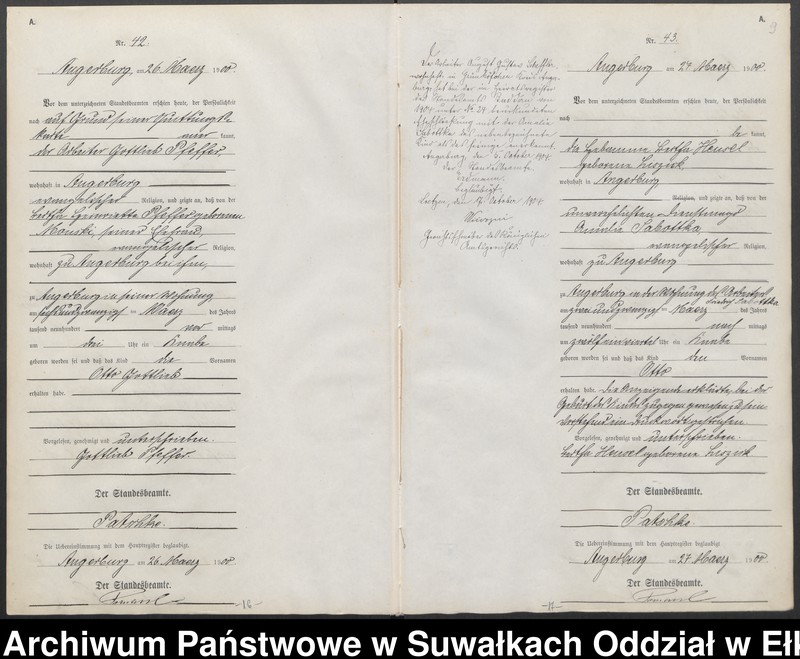 A.
Nr. 42.
Angerburg am 26. Maerz 1900
Vor dem unterzeichneten Standesbeamten erschien heute, der Persönlichkeit
nach auf Grund seiner Quittungsk
karte kannt,
der Arbeiter Gottlieb Pfeffer,
wohnhaft in Angerburg
evangelischer Religion, und zeigte an, daß von der
Pfeffer geborenen
seiner Ehefrau,
evangelischer Religion,
wohnhaft zu Angerburg bei ihm,
zu Angerburg in seiner Wohnung
am sechsundzwanzigsten Maerz des Jahres
tausend neunhundert vor mittags
um drei Uhr ein Knabe
geboren worden sei und daß das Kind die Vornamen
Otto Gottlieb
erhalten habe.
Vorgelesen, genehmigt und unterschrieben.
Gottlieb Pfeffer.
Der Standesbeamte.
Patschke.
Die Uebereinstimmung mit dem Hauptregister beglaubigt.
Angerburg am 26. Maerz 1900
Der Standesbeamte.
-16-
Der Arbeiter August Gustav
wohnhaft in
burg hat in
des Standesamts vom
1904 unter No 24 beurkundeten
Eheschließung mit der Amalie
Sabottka das nebenbezeichnete
Kind als das seinige anerkannt.
Angerburg, den 5. Oktober 1904.
Der Standesbeamte
Beglaubigt.
Loetzen, den 17. Oktober 1904.
Gerichtsschreiber des Königlichen
Amtsgerichts.
A.
9
Nr. 43.
Angerburg am 27. Maerz 1900
Vor dem unterzeichneten Standesbeamten erschien heute, der Persönlichkeit
nach
be kannt,
die Hebamme Bertha Hensel
geborene
wohnhaft in Angerburg
Religion, und zeigte an, daß von der
unverehelichten Dienstmagd
Amalie Sabottka
evangelischer Religion,
wohnhaft zu Angerburg
zu Angerburg in der Wohnung des Arbeiters
Sabottka
am zweiundzwanzigsten Maerz des Jahres
tausend neunhundert nach mittags
um zwölf einviertel Uhr ein Knabe
geboren worden sei und daß das Kind den Vornamen
Otto
erhalten habe. Die Anzeigende erklärte bei der
Geburt des Kindes zugegen gewesen zu sein
Vorstehend ein Druckwort gestrichen.
Vorgelesen, genehmigt und unterschrieben.
Bertha Hensel geborene
Der Standesbeamte.
Patschke.
Die Uebereinstimmung mit dem Hauptregister beglaubigt.
Angerburg am 27. Maerz 1900
Der Standesbeamte.
-17-
Archiwum Państwowe w Suwałkach Oddział w Ełk